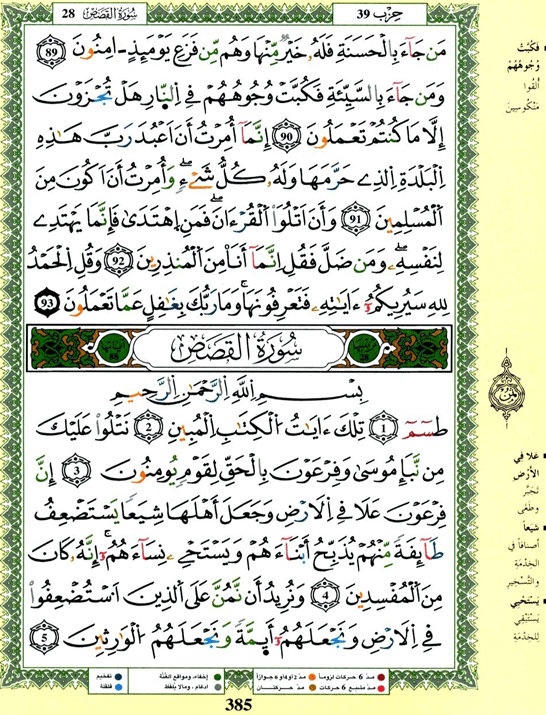 حِزْب 39
سُورَةُ القَصَص 28
مَن جَآءَ بِالْحَسَنَةِ فَلَهُۥ خَيْرٌ مِّنْهَا وَهُم مِّن فَزَعِ يَوْمَئِذٍ ـ امِنُونَ 89
وَمَن جَآءَ بِالسَّيِّئَةِ فَكُبَّتْ وُجُوهُهُمْ فِي اِ۬لنّ۪ارِ هَلْ تُجْزَوْنَ
إِلَّا مَا كُنتُمْ تَعْمَلُونَ 90 إِنَّمَآ أُمِرْتُ أَنَ اَعْبُدَ رَبَّ هَٰذِهِ
اِ۬لْبَلْدَةِ اِ۬لذِے حَرَّمَهَا وَلَهُۥ كُلُّ شَےْءٖ وَأُمِرْتُ أَنَ اَكُونَ مِنَ
اَ۬لْمُسْلِمِينَ 91 وَأَنَ اَتْلُوَا۟ اَ۬لْقُرْءَانَ فَمَنِ اِ۪هْتَدَىٰ فَإِنَّمَا يَهْتَدِے
لِنَفْسِهِۦ وَمَن ضَلَّ فَقُلِ اِنَّمَآ أَنَا مِنَ اَ۬لْمُنذِرِينَ 92 وَقُلِ اِ۬لْحَمْدُ
لِلهِ سَيُرِيكُمُۥٓ ءَايَٰتِهِۦ فَتَعْرِفُونَهَا وَمَا رَبُّكَ بِغَٰفِلٍ عَمَّا تَعْمَلُونَ 93
سُورَةُ القَصَصِ
بِسْمِ اِ۬للَّهِ اِ۬لرَّحْمَٰنِ اِ۬لرَّحِيمِ
طَسِٓمِّٓ 1 تِلْكَ ءَايَٰتُ اُ۬لْكِتَٰبِ اِ۬لْمُبِينِ 2 نَتْلُوا۟ عَلَيْكَ
مِن نَّبَإِ مُوسَىٰ وَفِرْعَوْنَ بِالْحَقِّ لِقَوْمٖ يُومِنُونَ 3 إِنَّ
فِرْعَوْنَ عَلَا فِي اِ۬لَارْضِ وَجَعَلَ أَهْلَهَا شِيَعاٗ يَسْتَضْعِفُ
طَآئِفَةٗ مِّنْهُمْ يُذَبِّحُ أَبْنَآءَهُمْ وَيَسْتَحْيِۦ نِسَآءَهُمُۥٓ إِنَّهُۥ كَانَ
مِنَ اَ۬لْمُفْسِدِينَ 4 وَنُرِيدُ أَن نَّمُنَّ عَلَى اَ۬لذِينَ اَ۟سْتُضْعِفُوا۟
فِي اِ۬لَارْضِ وَنَجْعَلَهُمُۥٓ أَيِمَّةٗ وَنَجْعَلَهُمُ اُ۬لْوَٰرِثِينَ 5
فَكُبَّتْ
وُجُوهُهُمْ
أُلْقُوا
مَنْكُوسِينَ
ثُمُن
عَلَا فِي
الأرْضِ
تَجَبَّرَ
وطَغَى
شِيَعاً
أصنافاً في
الخِدْمَةِ
والتَّسْخِير
يَسْتَحْيِي
يَسْتَبْقِي
لِلخِدْمَةِ
مدّ 6 حركات لزوماً
مدّ 2 أو 4 أو 6 جوازاً
إخفاء، ومواقع الغُنَّة
تفخيم
مدّ مشبع 6 حركات
مدّ حركتان
إدغام، وما لا يُلفظ
قلقلة
385